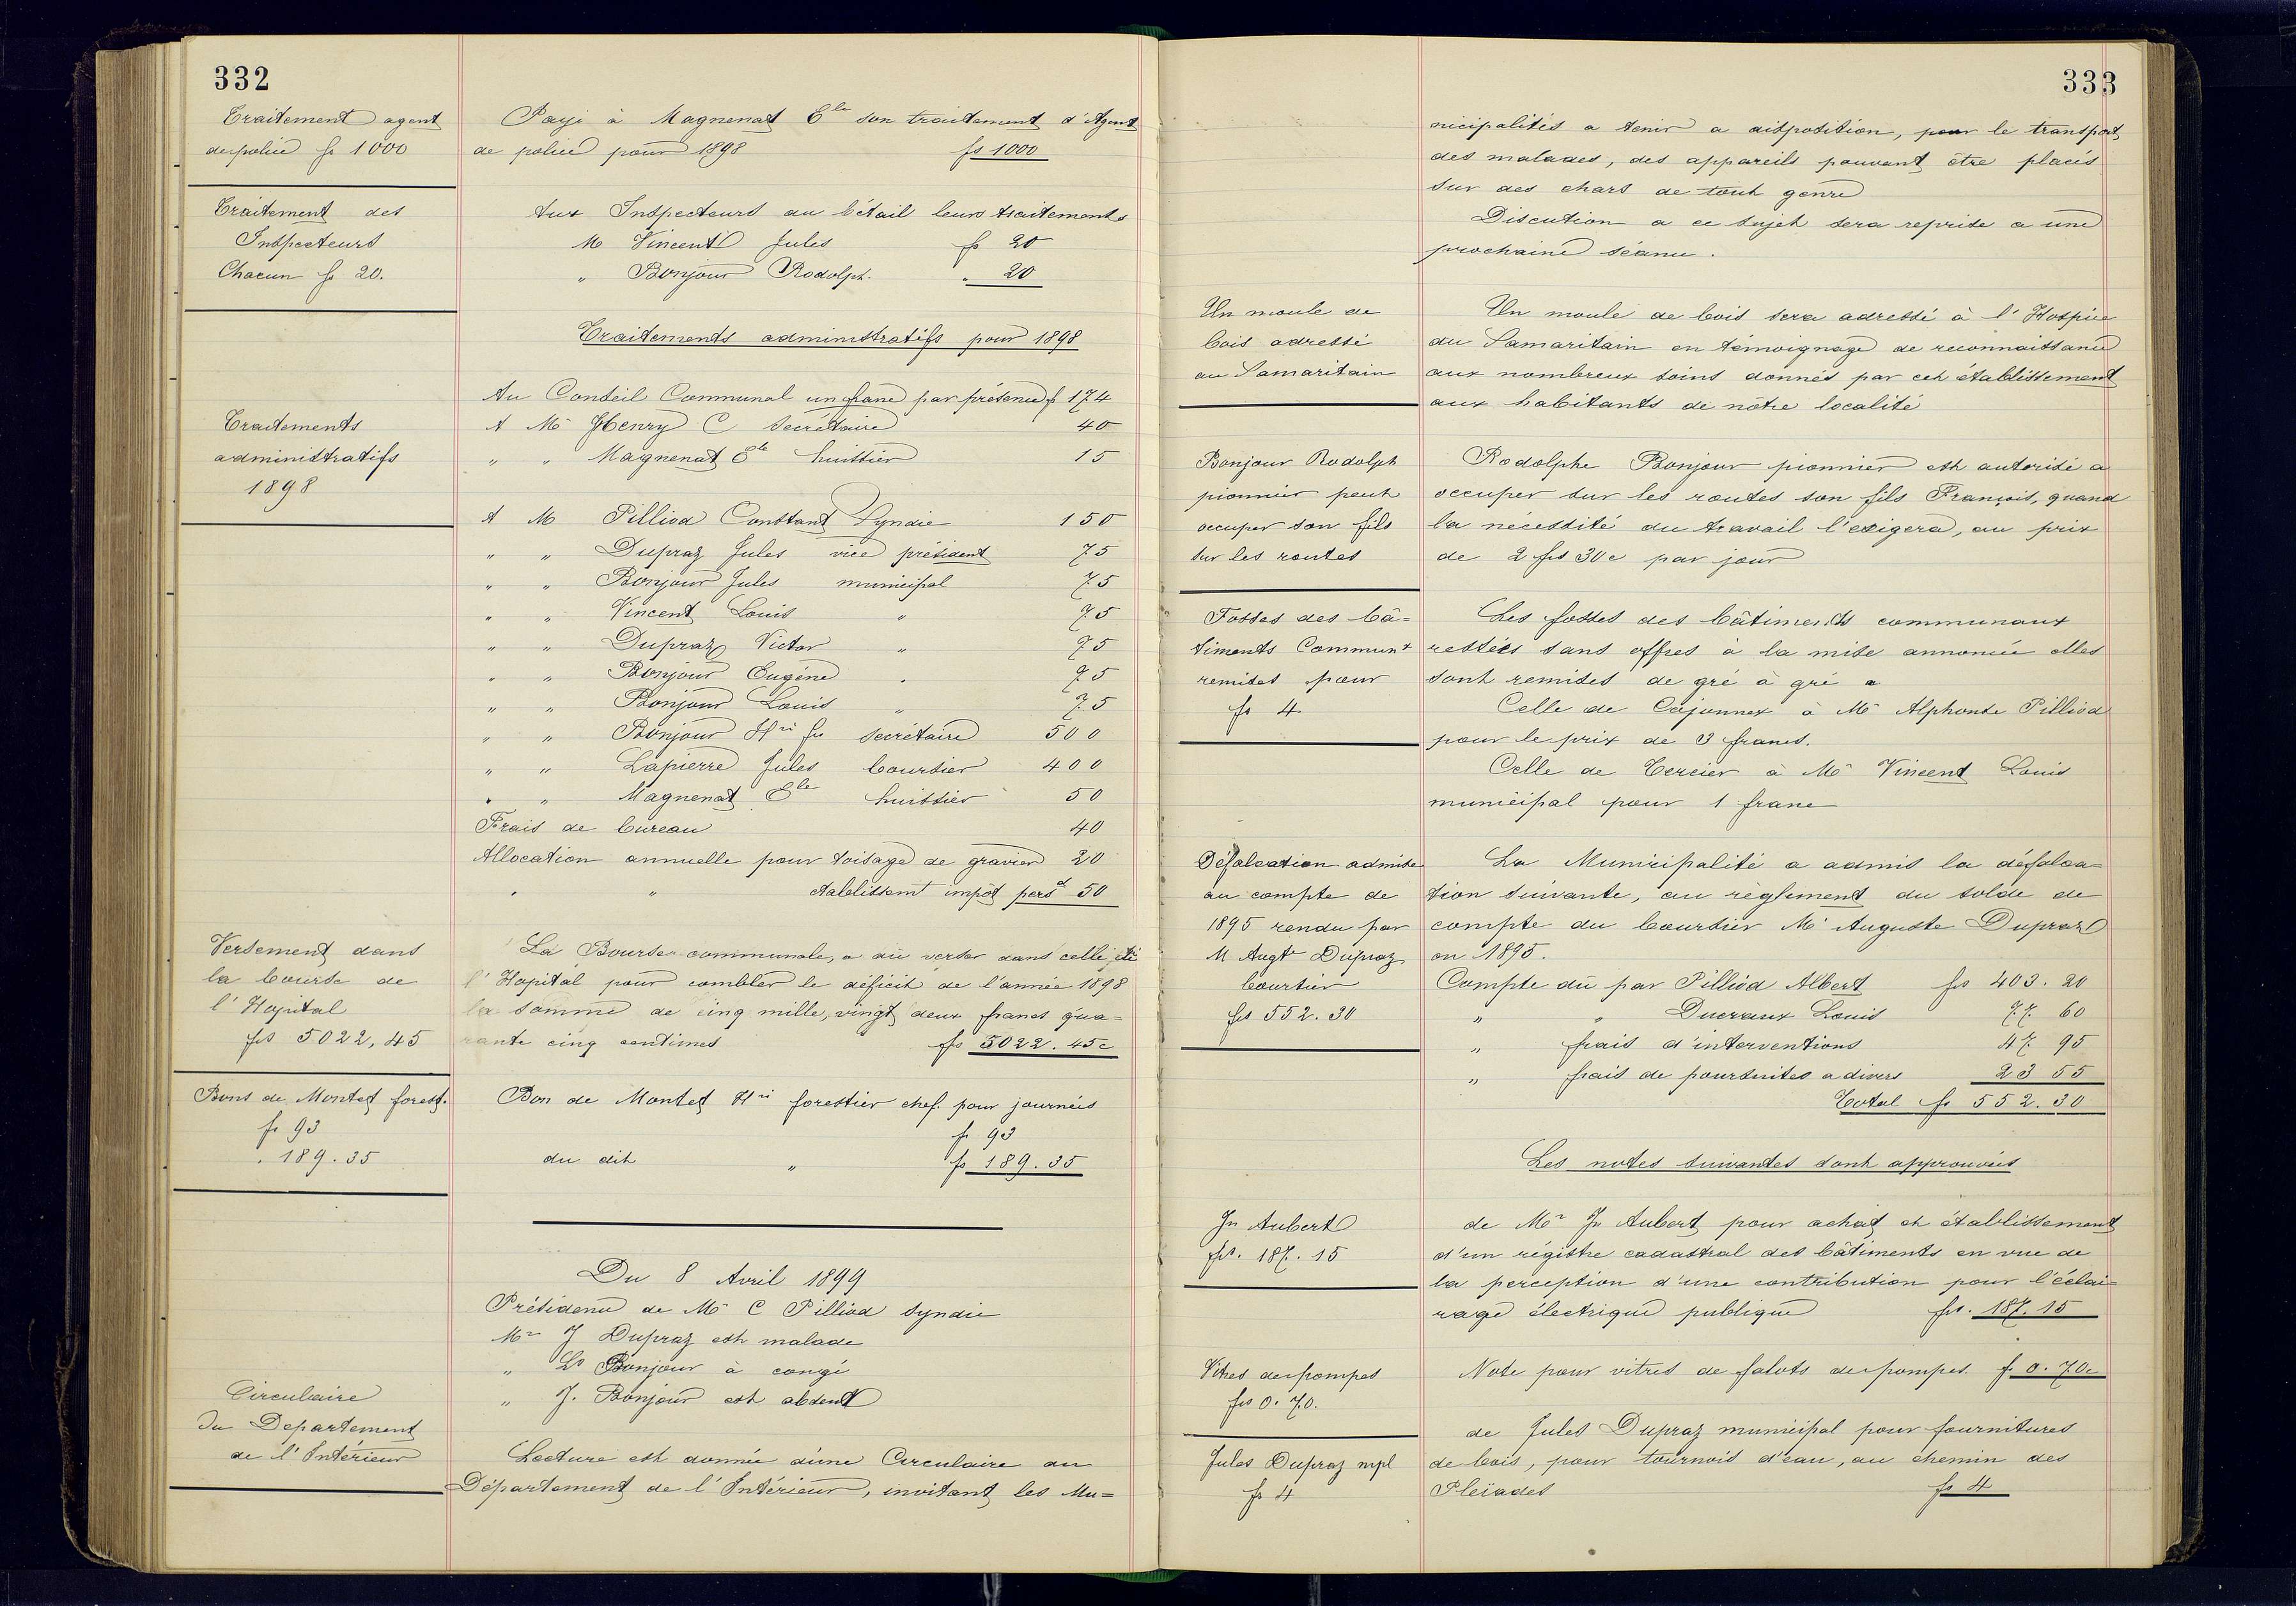 332
Traitement agent
de police fs 1000
Payé à Magnenat Ele son traitement d'Agent
de police pour 1898 fs 1000
Traitement des
Inspecteurs
Chacun fs 20.
Aux Inspecteurs du bétail leurs traitements
M Vincent Jules fs 20
" Bonjour Rodolph. " 20
Traitements administratifs pour 1898
Traitements
administratifs
1898
Au Conseil Communal un franc par présence fs 174
A Mr Henry C Secrétaire 40
" " Magnenat Ele huissier 15
A M Pilliod Constant Syndic 150
" " Dupraz Jules vice président 75
" " Bonjour Jules municipal 75
" " Vincent Louis " 75
" " Dupraz Victor " 75
" " Bonjour Eugène " 75
" " Bonjour Louis " 75
" " Bonjour Hri fs secrétaire 500
" " Lapierre Jules boursier 400
" " Magnenat Ele huissier 50
Frais de bureau 40
Allocation annuelle pour toisage de gravier 20
" " établissemt impôt pers 50
Versement dans
la bourse de
l'Hopital
frs 5022,45
La Bourse communale, a dû verser dans celle de
l'Hopital pour combler le déficit de l'année 1898
la somme de cinq mille, vingt deux francs qua=
rante cinq centimes fs 5022.45c
Bons de Montet forest.
fr 93
" 189.35
Bon de Montet Hri forestier chef. pour journées
fr 93
du dit " fs 189.35
Du 8 Avril 1899
Présidence de Mr C Pilliod Syndic
Mr J Dupraz est malade
" Ls Bonjour à congé
" J. Bonjour est absent
Circulaire
du Departement
de l'Intérieur
Lecture est donnée d'une Circulaire du
Département de l'Intérieur, invitant les Mu=
333
nicipalités a tenir a disposition, pour le transport
des malades, des appareils pouvant être placés
sur des chars de tout genre
Discution a ce sujet sera reprise a une
prochaine séance.
Un moule de
bois adressé
au Samaritain
Un moule de bois sera adressé à l'Hospice
du Samaritain en témoignage de reconnaissance
aux nombreux soins donnés par cet établissement
aux habitants de nôtre localité
Bonjour Rodolph
pionnier peut
occuper son fils
sur les routes
Rodolphe Bonjour pionnier est autorisé a
occuper sur les routes son fils François, quand
la nécessité du travail l'exigera, au prix
de 2 frs 30c par jour
Fosses des bâ=
timents Communx
remises pour
fs 4
Les fosses des bâtiments communaux
restées sans offres à la mise annoncée elles
sont remises de gré à gré a
Celle de Cojonnex à Mr Alphonse Pilliod
pour le prix de 3 francs.
Celle de Tercier à Mr Vincent Louis
municipal pour 1 franc
Défalcation admise
au compte de
1895 rendu par
M Augte Dupraz
boursier
frs 552.30
La Municipalité a admis la défalca=
tion suivante, au règlement du solde de
compte du boursier Mr Auguste Dupraz
en 1895.
Compte dû par Pilliod Albert frs 403.20
" " Ducraux Louis 77 60
" frais d'interventions 47 95
" frais de poursuites a divers 23 55
Total fs 552.30
Les notes suivantes sont approuvées
Jn Aubert
frs. 187.15
de Mr Jn Aubert pour achat et établissement
d'un régistre cadastral des bâtiments en vue de
la perception d'une contribution pour l'éclai=
rage électrique publique frs. 187.15
Vitres des pompes
frs 0.70.
Note pour vitres de falots des pompes. fs 0.70c
Jules Dupraz mpl
fr 4
de Jules Dupraz municipal pour fournitures
de bois, pour tournois d'eau, au chemin des
Pleiades fs 4